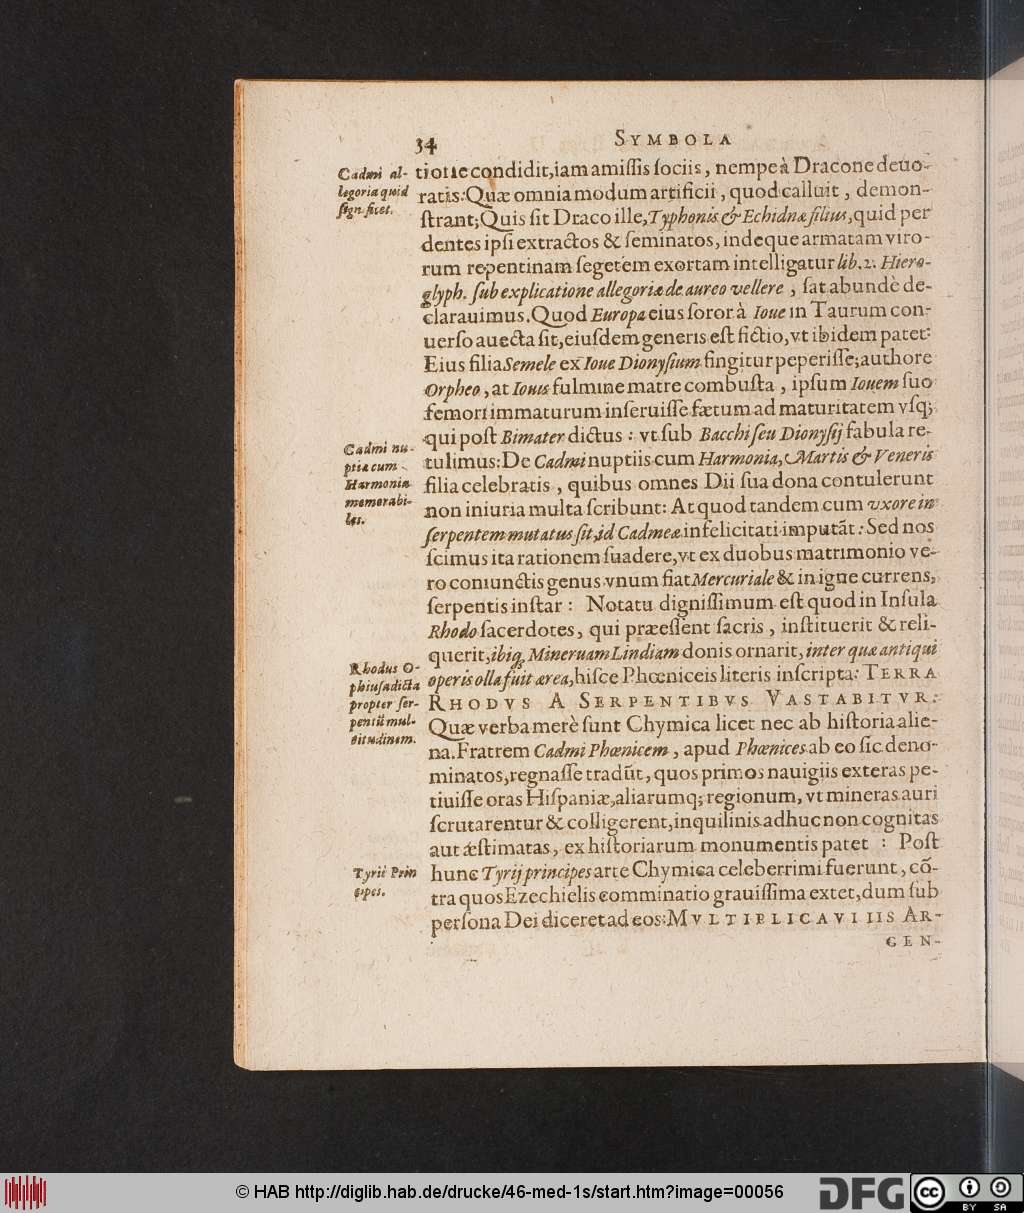 34 SYMBOLA
Cadmi al-
legoria quid
significet.
tione condidit, iam amissis sociis, nempe à Dracone deuo-
ratis: Quæ omnia modum artificii, quod calluit, demon-
ſtrant; Quis ſit Draco ille, Typhonis & Echidnæ filius, quid per
dentes ipſi extractos & ſeminatos, indeque armatam viro-
rum repentinam ſegetem exortam intelligatur lib. 2. Hiero-
glyph. ſub explicatione allegoriæ de aureo vellere, ſat abundè de-
clarauimus. Quod Europa eius ſoror à Ioue in Taurum con-
uerſo auecta ſit, eiuſdem generis eſt fictio, vt ibidem patet:
Eius filia Semele ex Ioue Dionyſium fingitur peperiſſe; authore
Orpheo, at Iouis fulmine matre combuſta, ipſum Iouem ſuo
femori immaturum inſeruiſſe fætum ad maturitatem vſq;
qui poſt Bimater dictus: vt ſub Bacchi ſeu Dionyſij fabula re-
Cadmi nu-
ptiæ cum
Harmonia
memorabi-
les.
tulimus: De Cadmi nuptiis cum Harmonia, Martis & Veneris
filia celebratis, quibus omnes Dii ſua dona contulerunt
non iniuria multa ſcribunt: At quod tandem cum vxore in
ſerpentem mutatus ſit, id Cadmeæ infelicitati imputāt: Sed nos
ſcimus ita rationem ſuadere, vt ex duobus matrimonio ve-
ro coniunctis genus vnum fiat Mercuriale & in igne currens,
ſerpentis inſtar: Notatu digniſſimum eſt quod in Inſula
Rhodo ſacerdotes, qui præeſſent ſacris, inſtituerit & reli-
querit, ibiq; Mineruam Lindiam donis ornarit, inter quæ antiqui
Rhodus O-
phiuſa dicta
propter ſer-
pentiū mul-
titudinem.
operis olla fuit ærea, hiſce Phœniceis literis inſcripta: TERRA
RHODVS A SERPENTIBVS VASTABITVR:
Quæ verba merè ſunt Chymica licet nec ab hiſtoria alie-
na. Fratrem Cadmi Phœnicem, apud Phœnices ab eo ſic deno-
minatos, regnaſſe tradūt, quos primos nauigiis exteras pe-
tiuiſſe oras Hiſpaniæ, aliarumq; regionum, vt mineras auri
ſcrutarentur & colligerent, inquilinis adhuc non cognitas
aut æſtimatas, ex hiſtoriarum monumentis patet: Poſt
Tyrii Prin
cipes.
hunc Tyrij principes arte Chymica celeberrimi fuerunt, cō-
tra quos Ezechielis comminatio grauiſſima extet, dum ſub
perſona Dei diceret ad eos: MVLTIPLICAVIIIS AR-
GEN-
© HAB http://diglib.hab.de/drucke/46-med-1s/start.htm?image=00056
DFG
cc BY SA